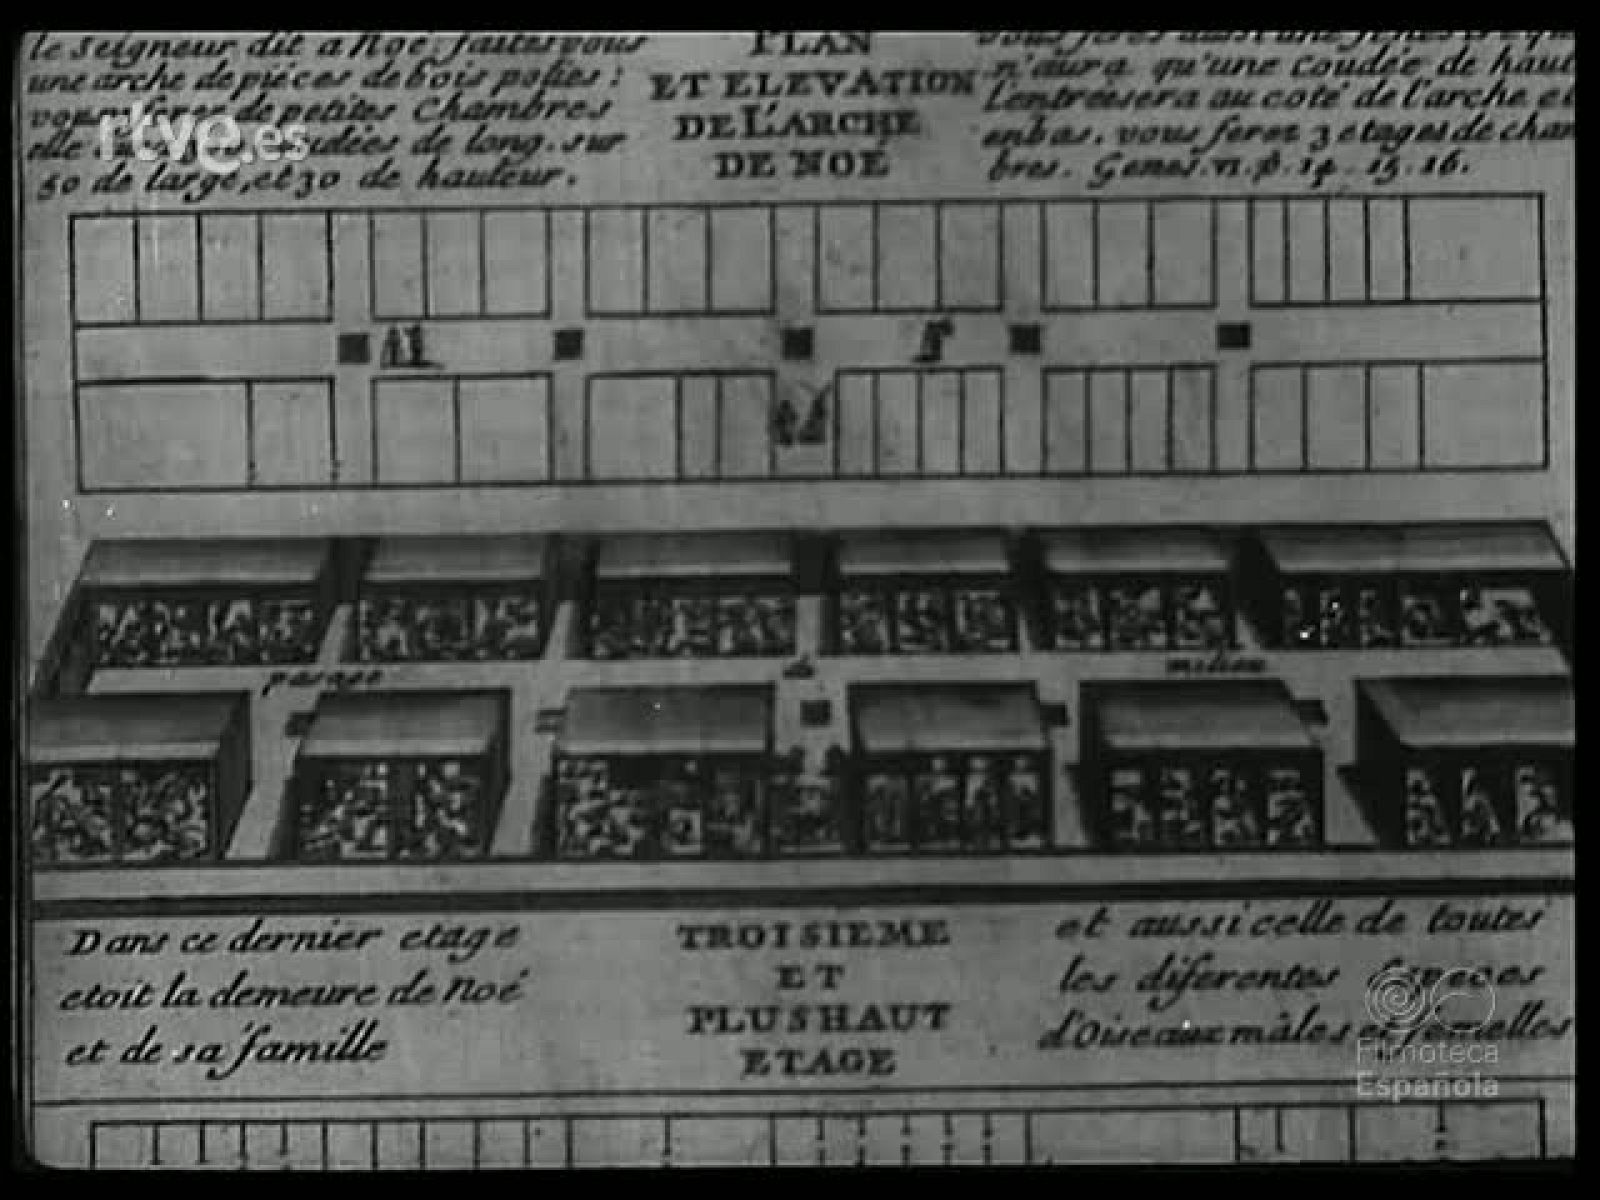 le Seigneur dit a Noé faites vous
une arche de piéces de bois polies :
vous feres de petites Chambres
elle coudées de long. sur
50 de large, et 30 de hauteur.
PLAN
ET ELEVATION
DE L'ARCHE
DE NOÉ
vous feres aussi une fenestre qui
n'aura qu'une coudée de haut
l'entrée sera au coté de l'arche et
enbas. vous feres 3 etages de cham
bres. Genes. VI. ℣. 14. 15. 16.
rtve.es
pasage du milieu
Dans ce dernier etage
etoit la demeure de Noé
et de sa famille
TROISIEME
ET
PLUS HAUT
ETAGE
et aussi celle de toutes
les diferentes Especes
d'Oiseaux mâles et femelles
Filmoteca
Española